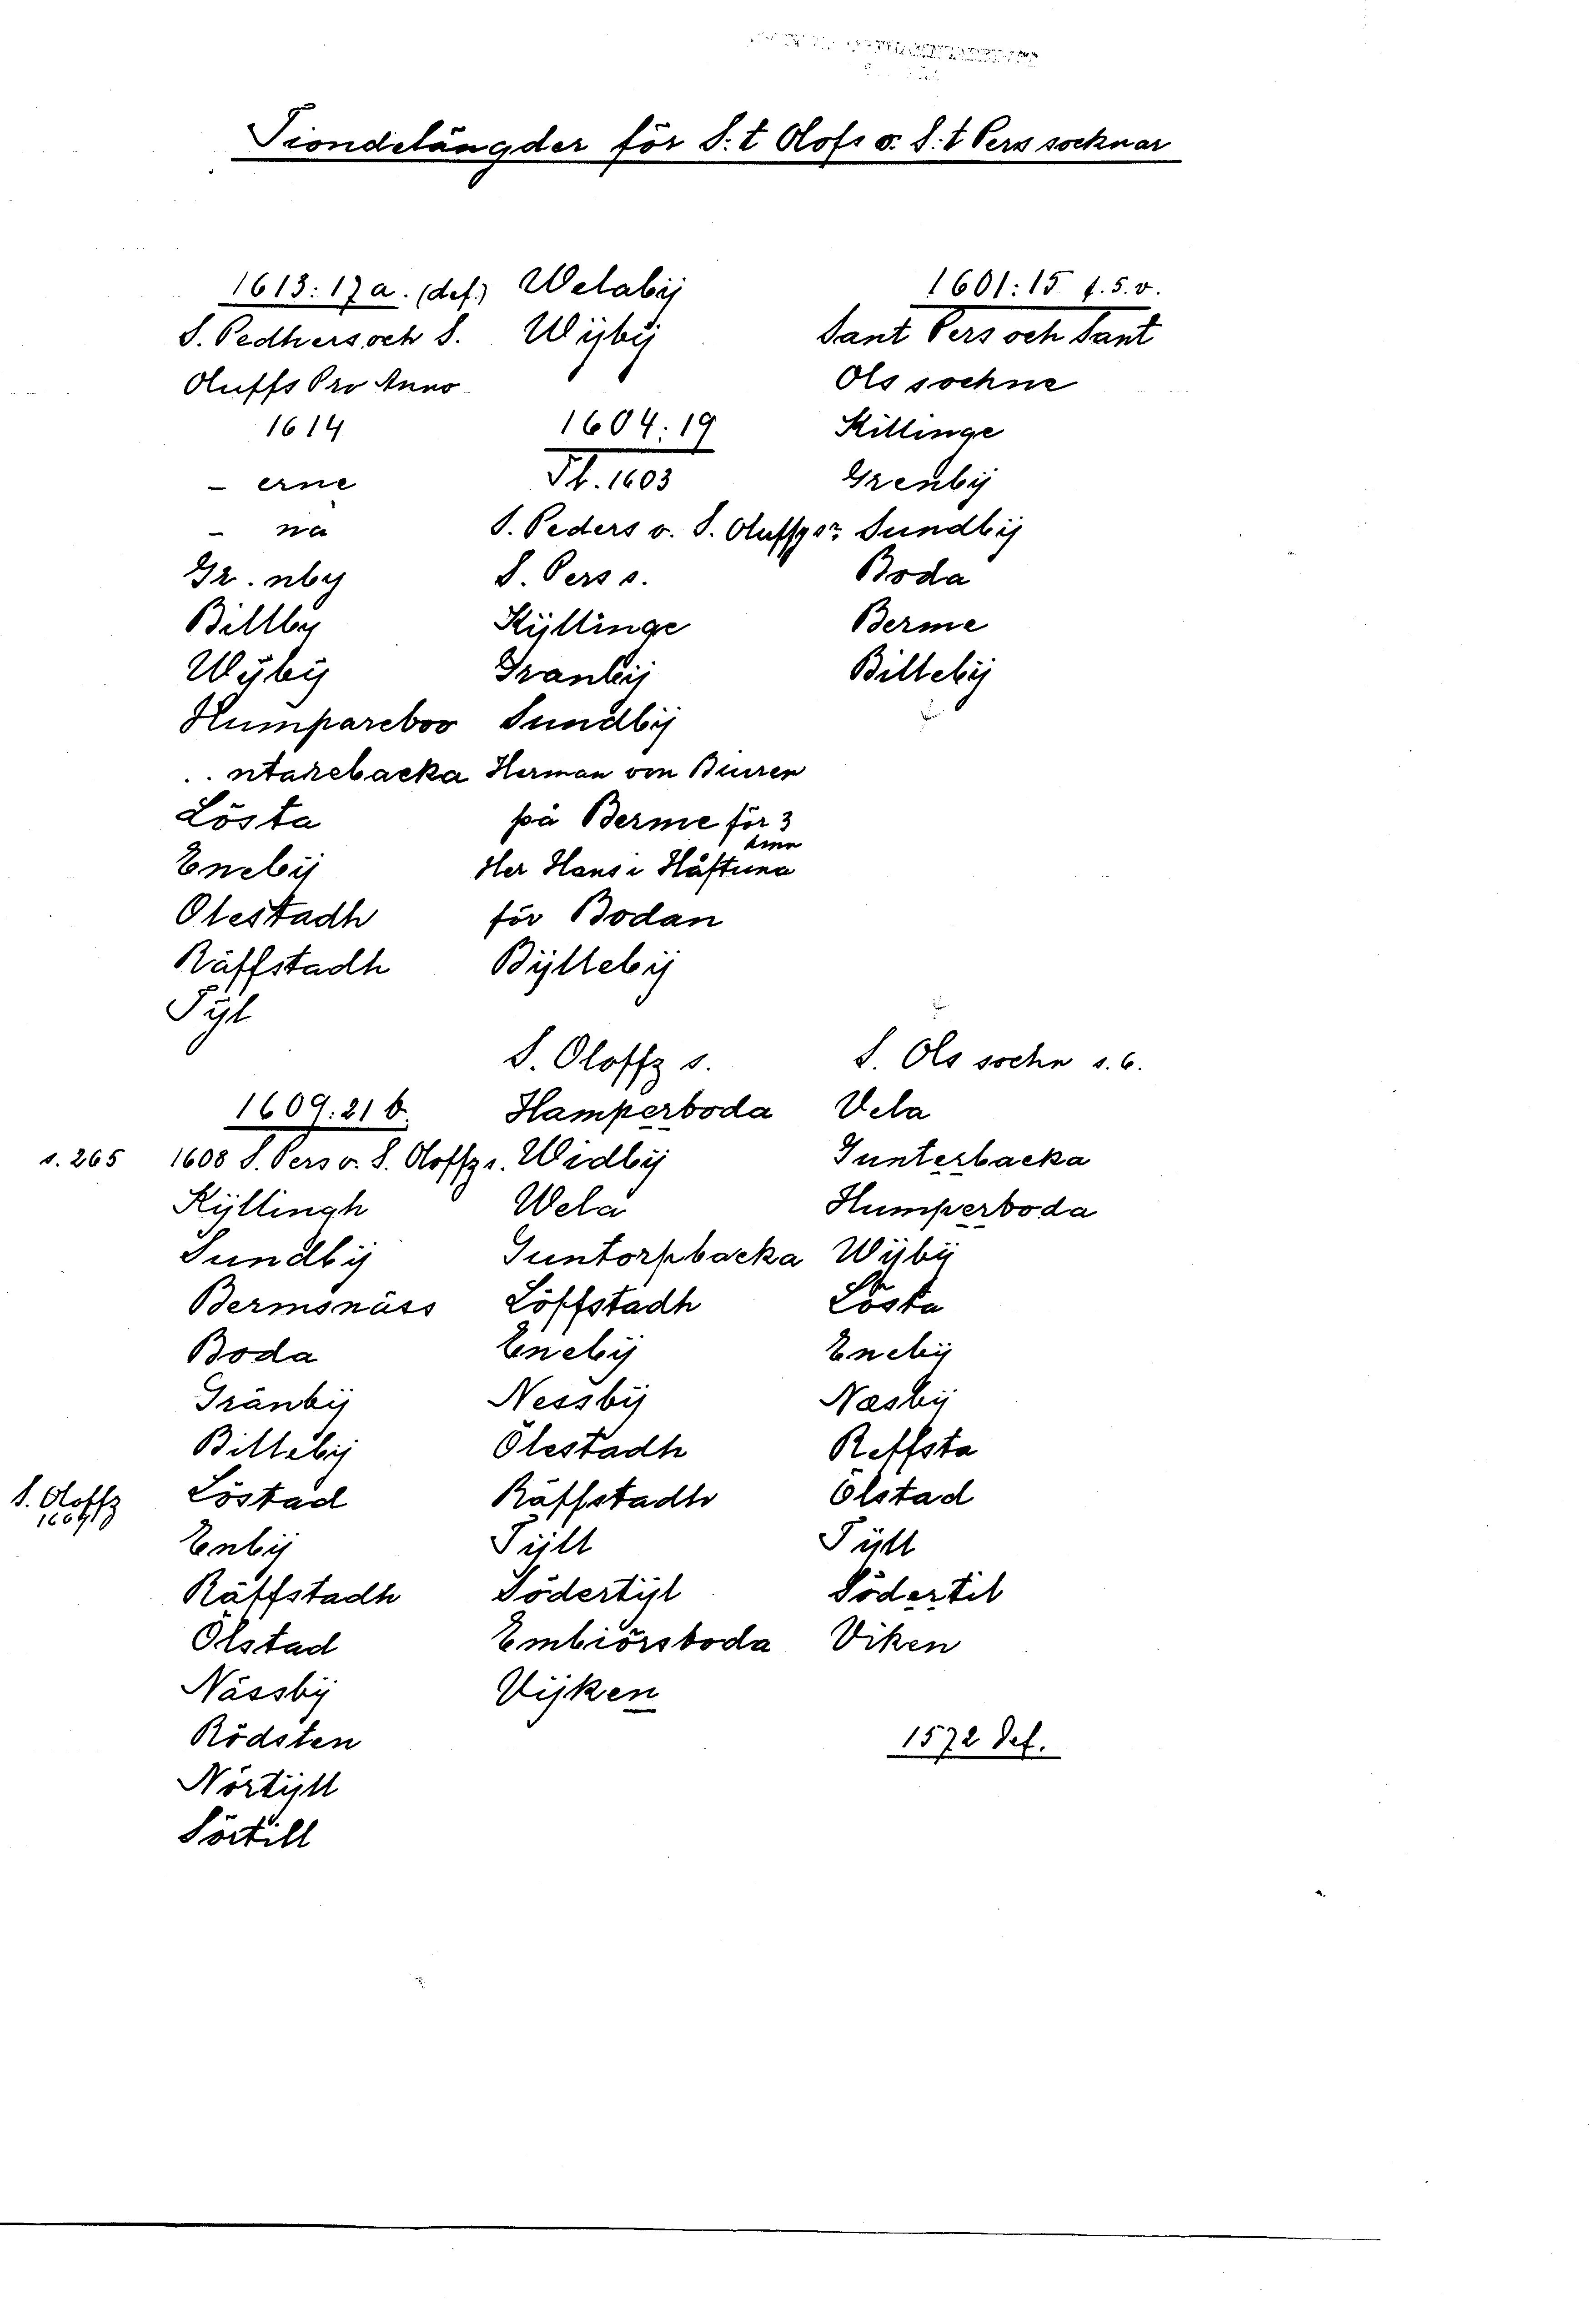 Tiondelängder för S:t Olofs o. S:t Pers socknar
1613:17a. (def.)
S. Pedhers och S.
Oluffs Pro Anno
1614
– erne
– na
Gr . nby
Billby
Wÿbÿ
Humpareboo
. . ntarebacka
Lösta
Enebÿ
Olestadh
Räffstadh
Tÿl
1609:21 b.
s. 265 1608 S. Pers o. S. Oloffz s.
Kÿllingh
Sundbÿ
Bermsnäss
Boda
Gränbÿ
Billebÿ
S. Oloffz Löstad
Enbÿ
Räffstadh
Ölstad
Nässbÿ
Rödsten
Nörtÿll
Sörtill
Welabÿ
Wÿbÿ
1604:19
Tl. 1603
S. Peders o. S. Oluffz sr
S. Pers s.
Kÿllinge
Granbÿ
Sundbÿ
Herman von Büren
på Berme för 3
Her Hans i Håftuna
för Bodan
Bÿllebÿ
S. Oloffz s.
Hamperboda
Widbÿ
Wela
Guntorpbacka
Löffstadh
Enebÿ
Nessbÿ
Ölestadh
Räffstadh
Tÿll
Södertÿl
Embiörsboda
Vijken
1601:15 f. 5. v.
Sant Pers och Sant
Ols sochne
Killinge
Grenbÿ
Sundbÿ
Boda
Berme
Billebÿ
S. Ols sochn s. 6.
Vela
Gunterbacka
Humperboda
Wÿbÿ
Lösta
Enebÿ
Næsbÿ
Reffsta
Ölstad
Tÿll
Södertil
Viken
1572 def.